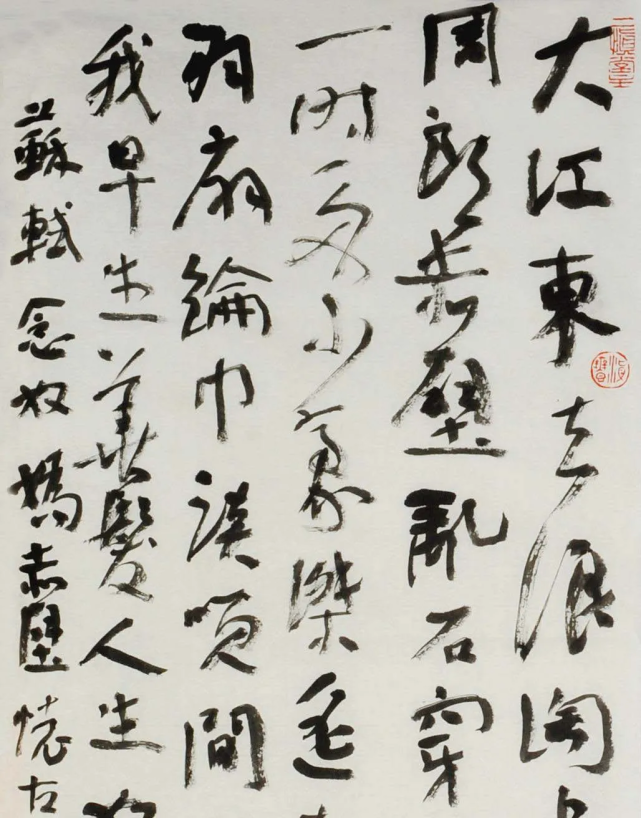 大江東去浪淘
周郎赤壁亂石穿
一時多少豪傑遙
羽扇綸巾談笑間
我早生華髮人生
蘇軾念奴嬌赤壁懷古